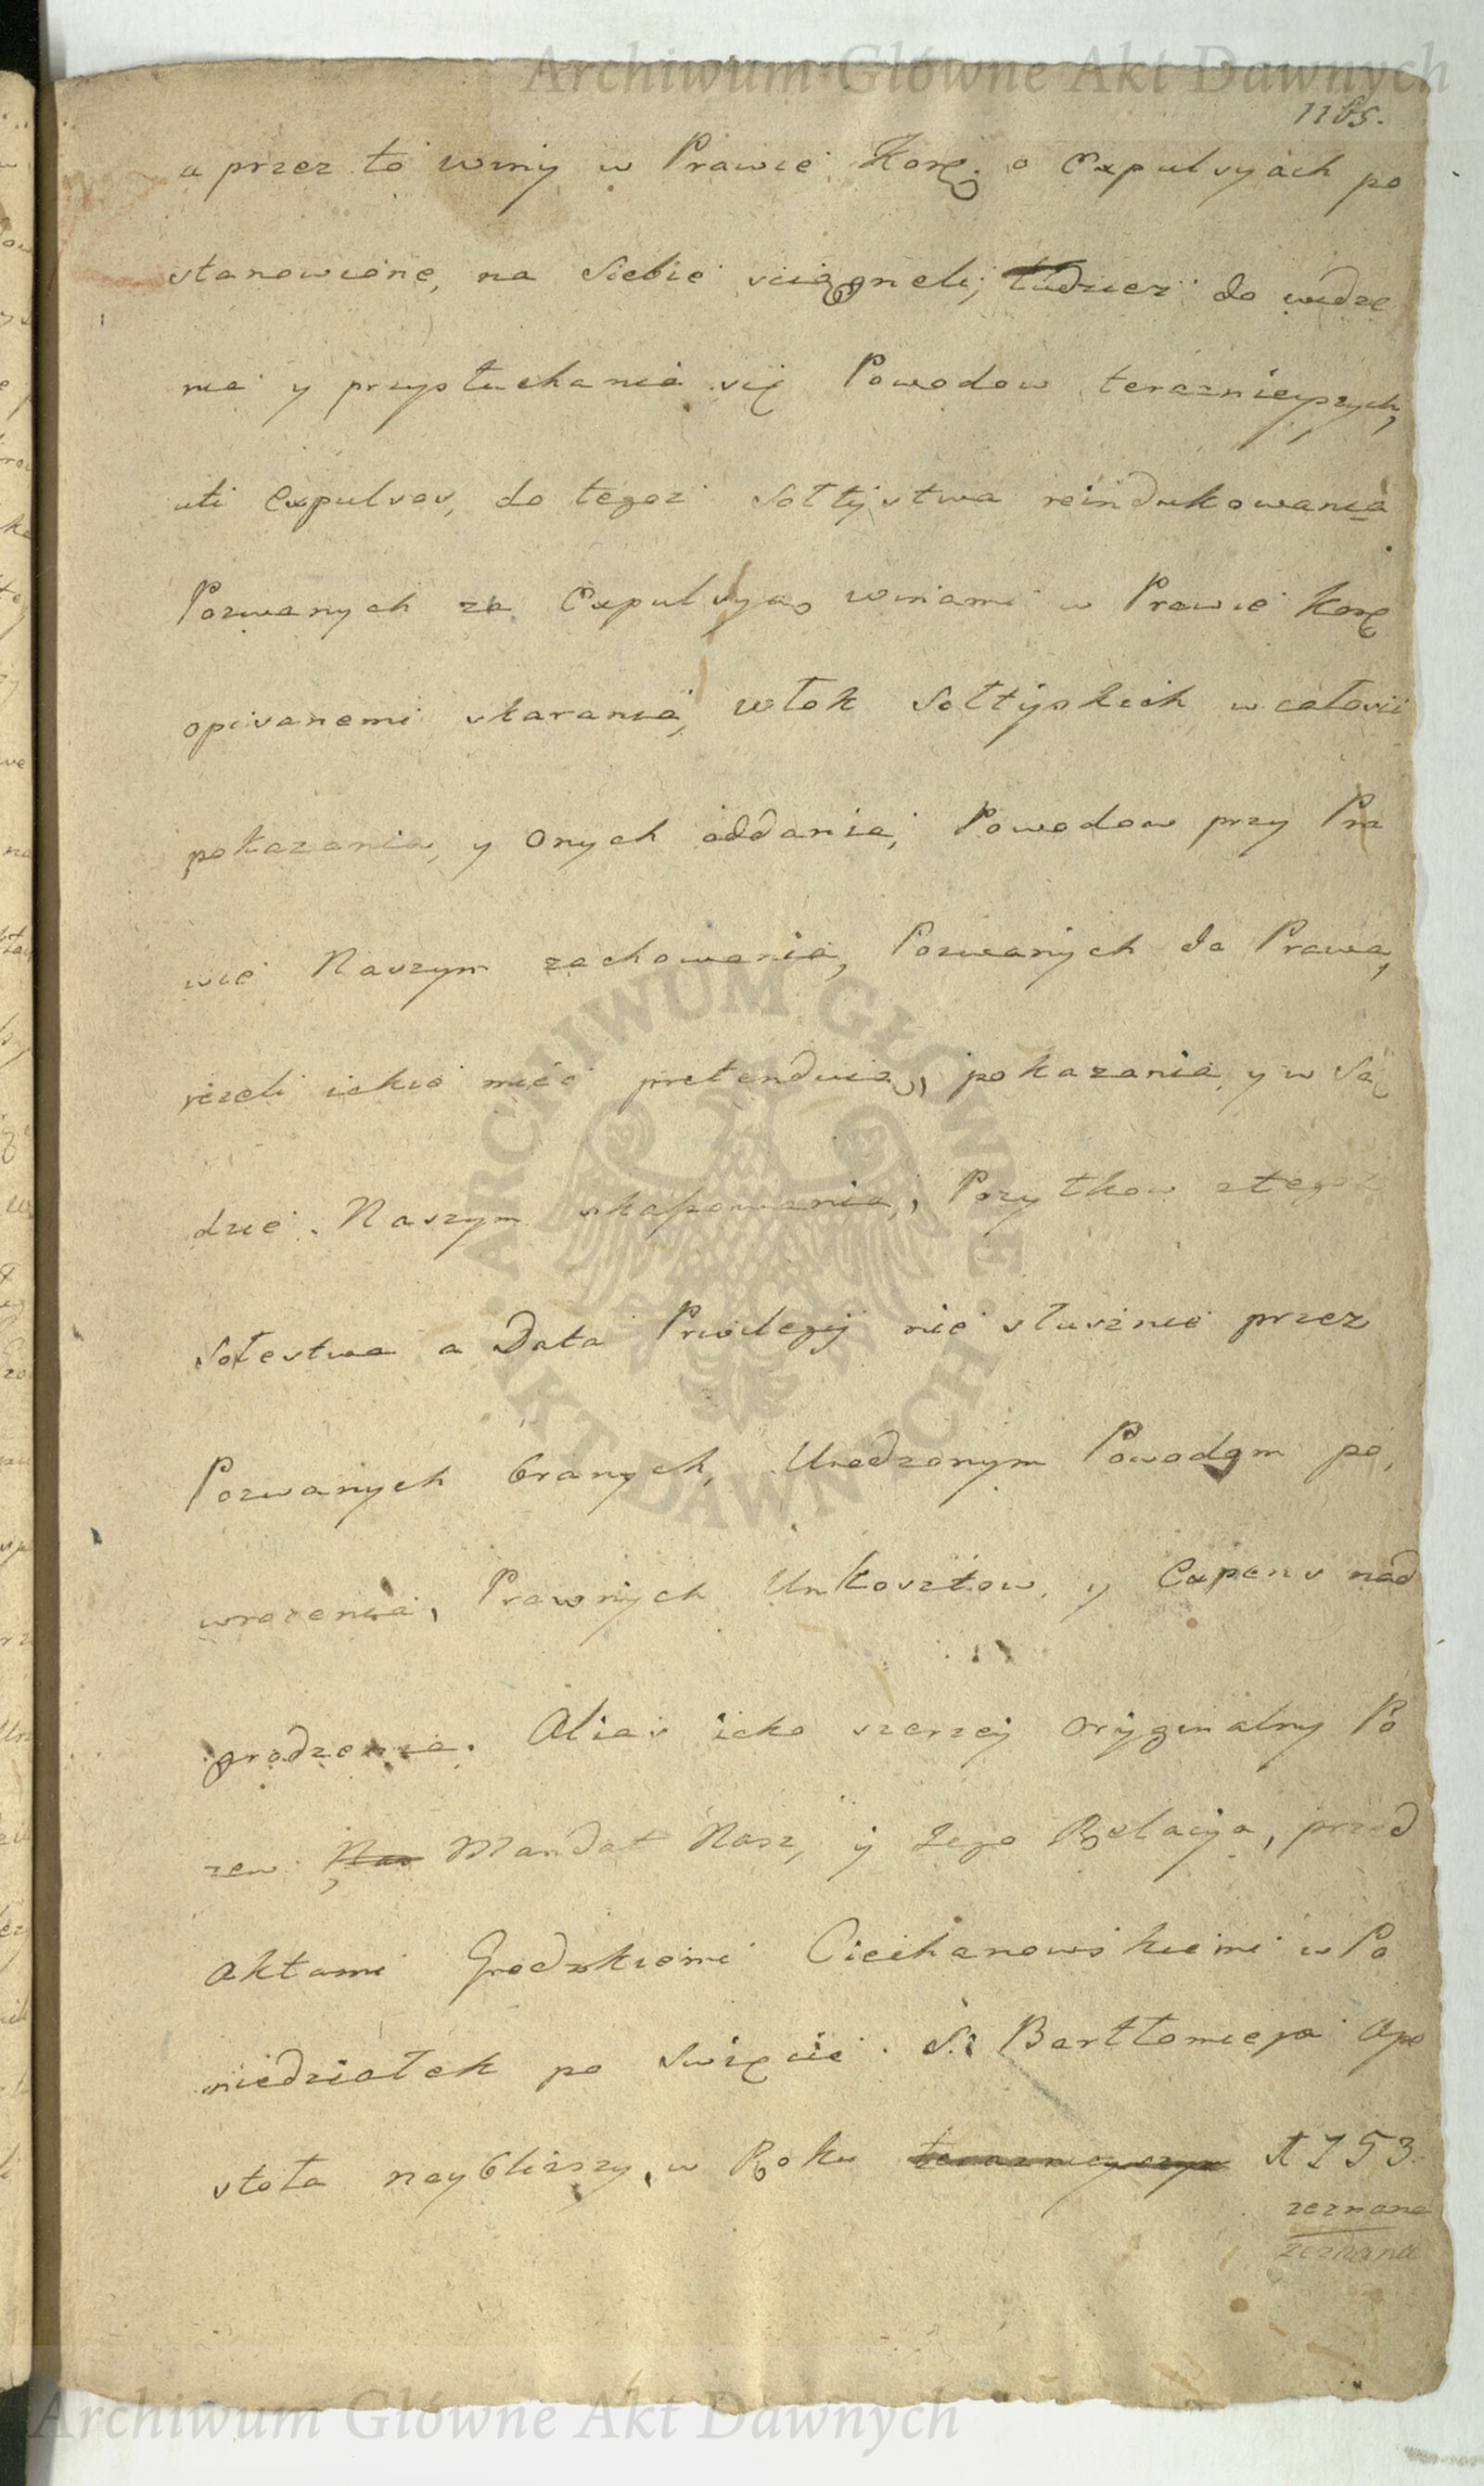 Archiwum Główne Akt Dawnych
1185.
a przez to winy w Prawie Korq. o Expulsyach po
stanowione, na siebie sciągneli; tudziesz do widze
nia y przysłuchania się Powodow teraznieyszych,
uti Expulsos, do tegoz Sołtystwa reindukowania
Pozwanych za Expulsyą winami w Prawie Korq
opisanemi skarania, włok Sołtyskich w całosci
pokazania, y onych oddania, Powodow przy Pra
wie Naszym zachowania, Pozwanych do Prawa,
jezeli iakie mieć pretenduią, pokazania, y w Są
dzie Naszym skassowania, Pozytkow z tegoz
Sołestwa a Data Privilegij nie słusznie przez
Pozwanych branych, Urodzonym Powodom po,
wrocenia, Prawnych Unkosztow, y Expens nad
grodzenia. Alias iako szerzey oryginalny Po
zew Nas Mandat Nasz, y Jego Relacya, przed
Aktami Grodzkiemi Ciechanowskiemi w Po
niedziałek po Swięcie S. Bartłomieja Apo
stoła naybliższy, w Roku teraznieyszym 1753.
zeznane
zeznane
ARCHIWUM GŁÓWNE AKT DAWNYCH
Archiwum Główne Akt Dawnych